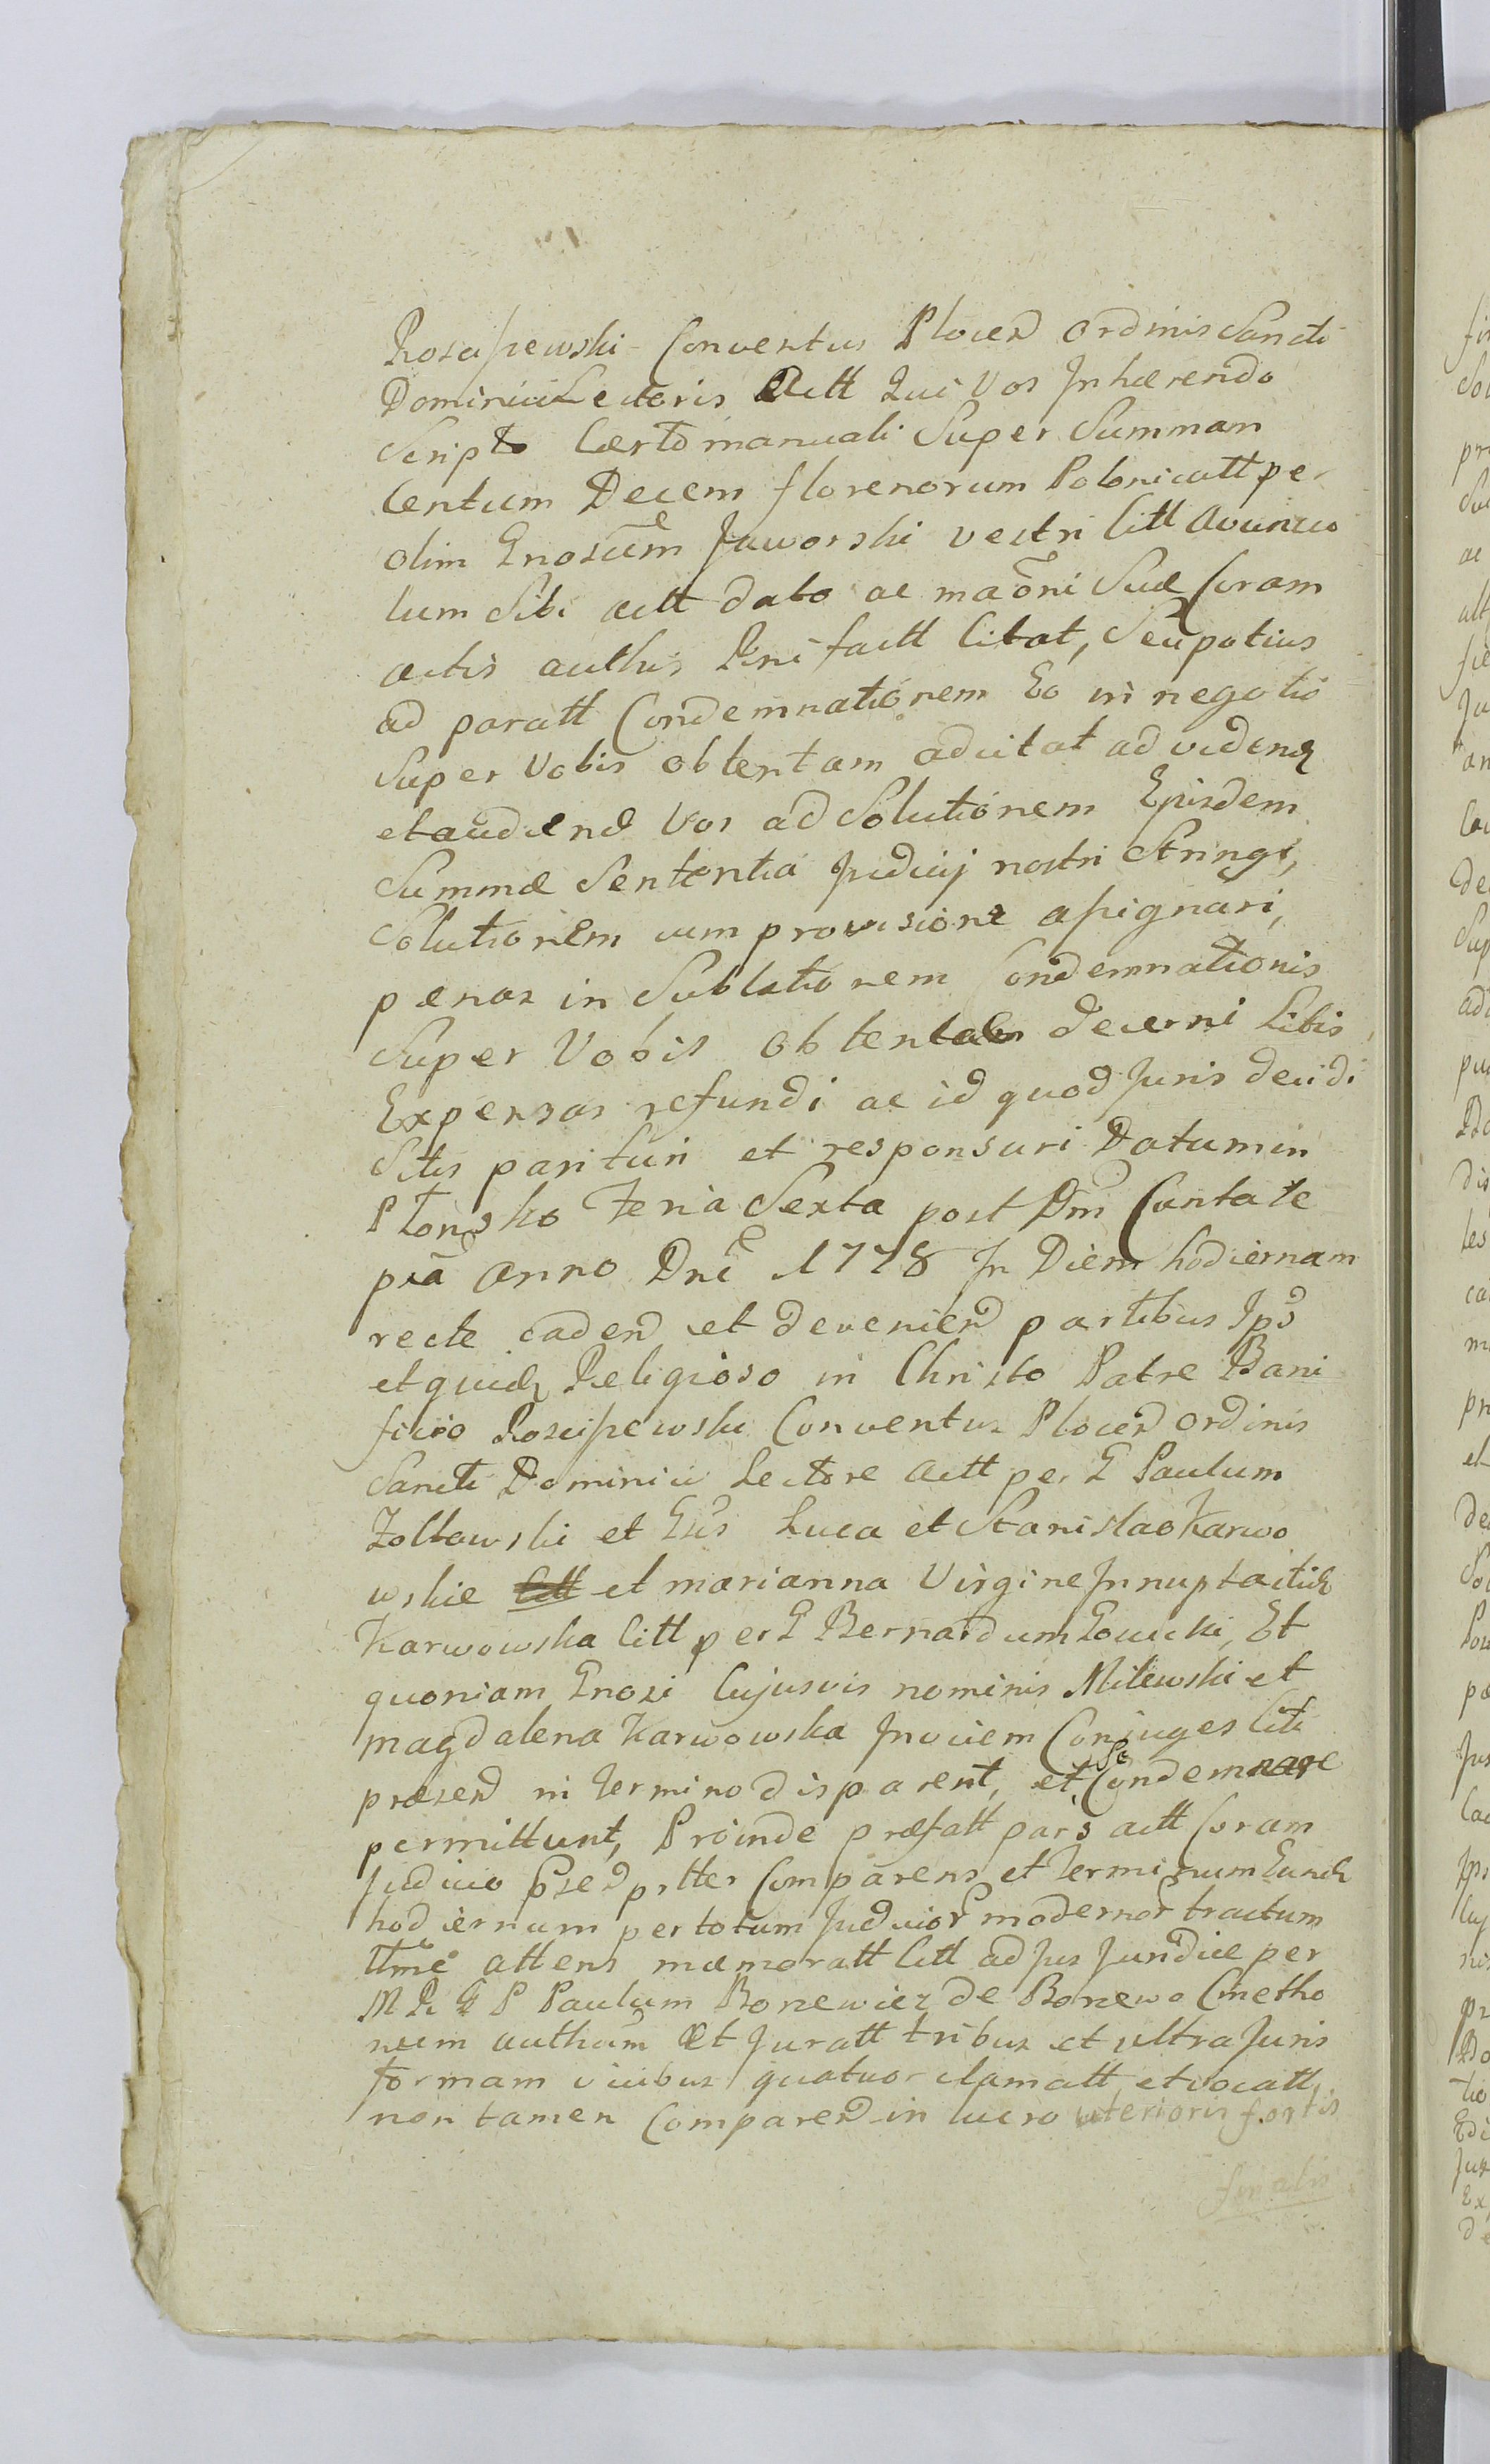 Rosciszewski Conventus Plocen Ordinis Sancti
Dominici Lectoris Actt Qui Vos Inhærendo
Scripto Certo manuali Super Summam
Centum Decem florenorum Polonicatt per
olim Gnosum Jaworski vestri Citt avuncu
lum Sibi actt dato ac
actis authis factt Citat, Seu potius
ad paratt Condemnationem Eo in negotio
Super Vobis obtentam adcitat ad videnq
et audiend Vos ad Solutionem Ejusdem
Summæ Sententia Judicij nostri Stringi,
Solutionem cum provisione assignari,
pænas in Sublationem Condemnationis
Super Vobis obtentæ decerni Litis
Expensas refundi ac id quod Juris decidi
Sitis parituri et responsuri Datum in
Płonsko Feria Sexta post Dm Cantate
pia Anno Dni 1778 In Diem hodiernam
recte caden et devenien partibus Ips
et quidq Religioso in Christo Patre Bani
facio Rosciszewski Conventus Plocen Ordinis
Sancti Dominici Lectore Actt per G Paulum
Zołtowski et Gsis Luca et Stanislao Karwo
wskie Citt et marianna Virgine Innupta itidq
Karwowska Citt per G Bernardum Łowicki, Et
quoniam Gnosi Cujusvis nominis Milewski et
Magdalena Karwowska Invicem Conjuges Citi
præsen in termino disparent, et Se Condemnare
permittunt, Proinde præfatt pars actt Coram
Judicio psltter Comparens et terminum Eundq
hodiernum per totum Judicior modernor tractum
ttme attens mæmoratt Citt ad Jus Juridice per
M R G P Paulum Bonewicz de Bonewo Cmetho
num authum Et Juratt tribus et ultra Juris
formam vicibus quatuor clamatt et vocatt,
non tamen Comparen in lucro ulterioris fortis
finalis